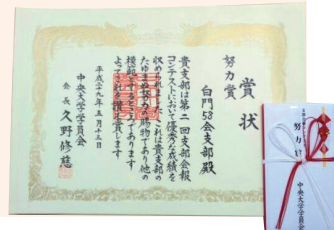 賞状
努力賞
白門53会支部殿
貴支部は第二回支部会報
コンテストにおいて優秀な成績を
収められましたこれは貴支部の
たゆまぬ努力の賜物であり他の
模範とするところであります
よってこれを讃え賞します
平成二十九年五月十三日
中央大学学員会
会長久野修慈
努力賞
中央大学学員会